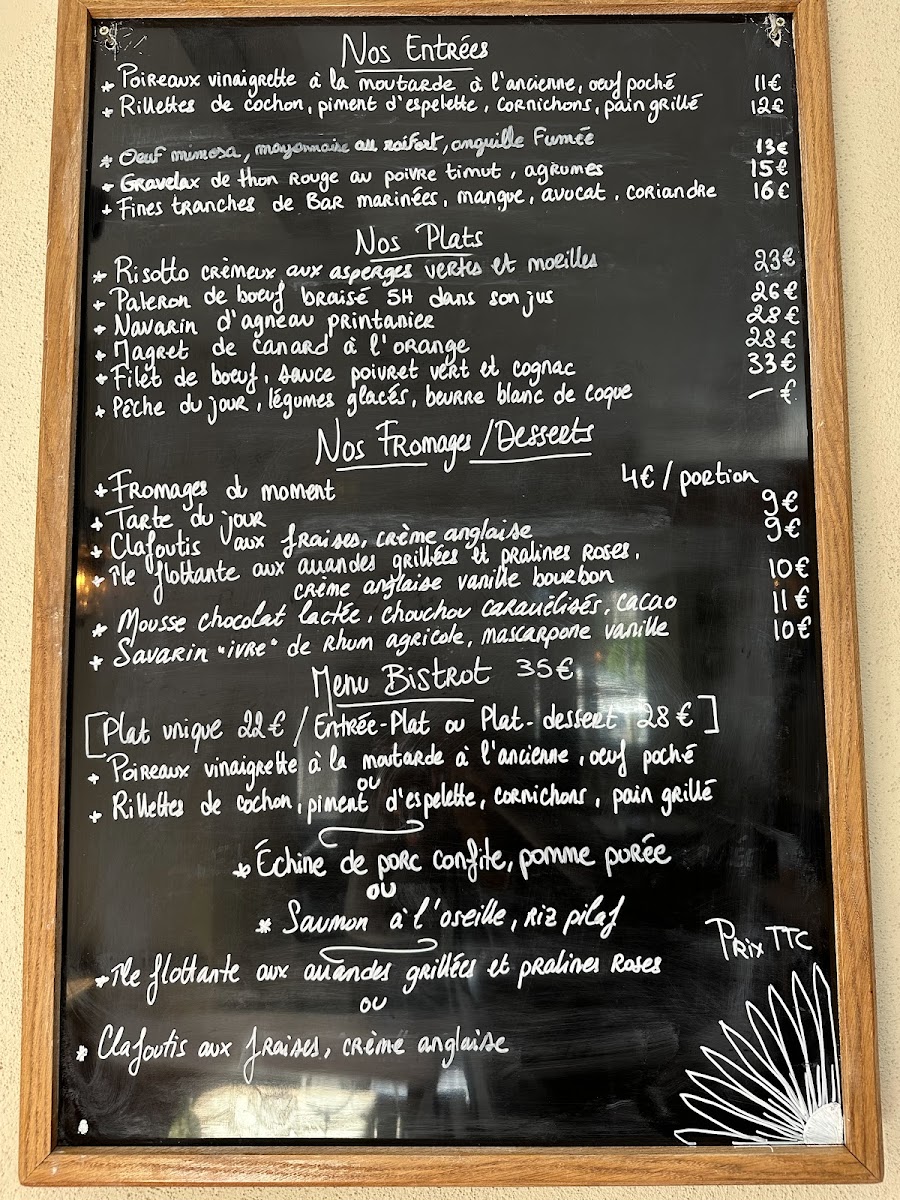 Nos Entrées
* Poireaux vinaigrette à la moutarde à l'ancienne, oeuf poché 11€
* Rillettes de cochon, piment d'espelette, cornichons, pain grillé 12€
* Oeuf mimosa, mayonnaise au raifort, anguille Fumée 13€
* Gravelax de thon Rouge au poivre timut, agrumes 15€
* Fines tranches de Bar marinées, mangue, avocat, coriandre 16€
Nos Plats
* Risotto crémeux aux asperges vertes et morilles 23€
* Paleron de boeuf braisé 5H dans son jus 26€
* Navarin d'agneau printanier 28€
* Magret de canard à l'orange 28€
* Filet de boeuf, sauce poivret vert et cognac 33€
* Pêche du jour, légumes glacés, beurre blanc de coque — €
Nos Fromages / Desserts
* Fromages du moment 4€ / portion
* Tarte du jour 9€
* Clafoutis aux fraises, crème anglaise 9€
* île flottante aux amandes grillées et pralines Roses, 10€
crème anglaise vanille bourbon
* Mousse chocolat lactée, chouchou caramélisés, cacao 11€
* Savarin "ivre" de Rhum agricole, mascarpone vanille 10€
Menu Bistrot 35€
[Plat unique 22€ / Entrée-Plat ou Plat-dessert 28€]
* Poireaux vinaigrette à la moutarde à l'ancienne, oeuf poché
ou
* Rillettes de cochon, piment d'espelette, cornichons, pain grillé
* Échine de porc confite, pomme purée
ou
* Saumon à l'oseille, riz pilaf
Prix TTC
* île flottante aux amandes grillées et pralines Roses
ou
* Clafoutis aux fraises, crème anglaise